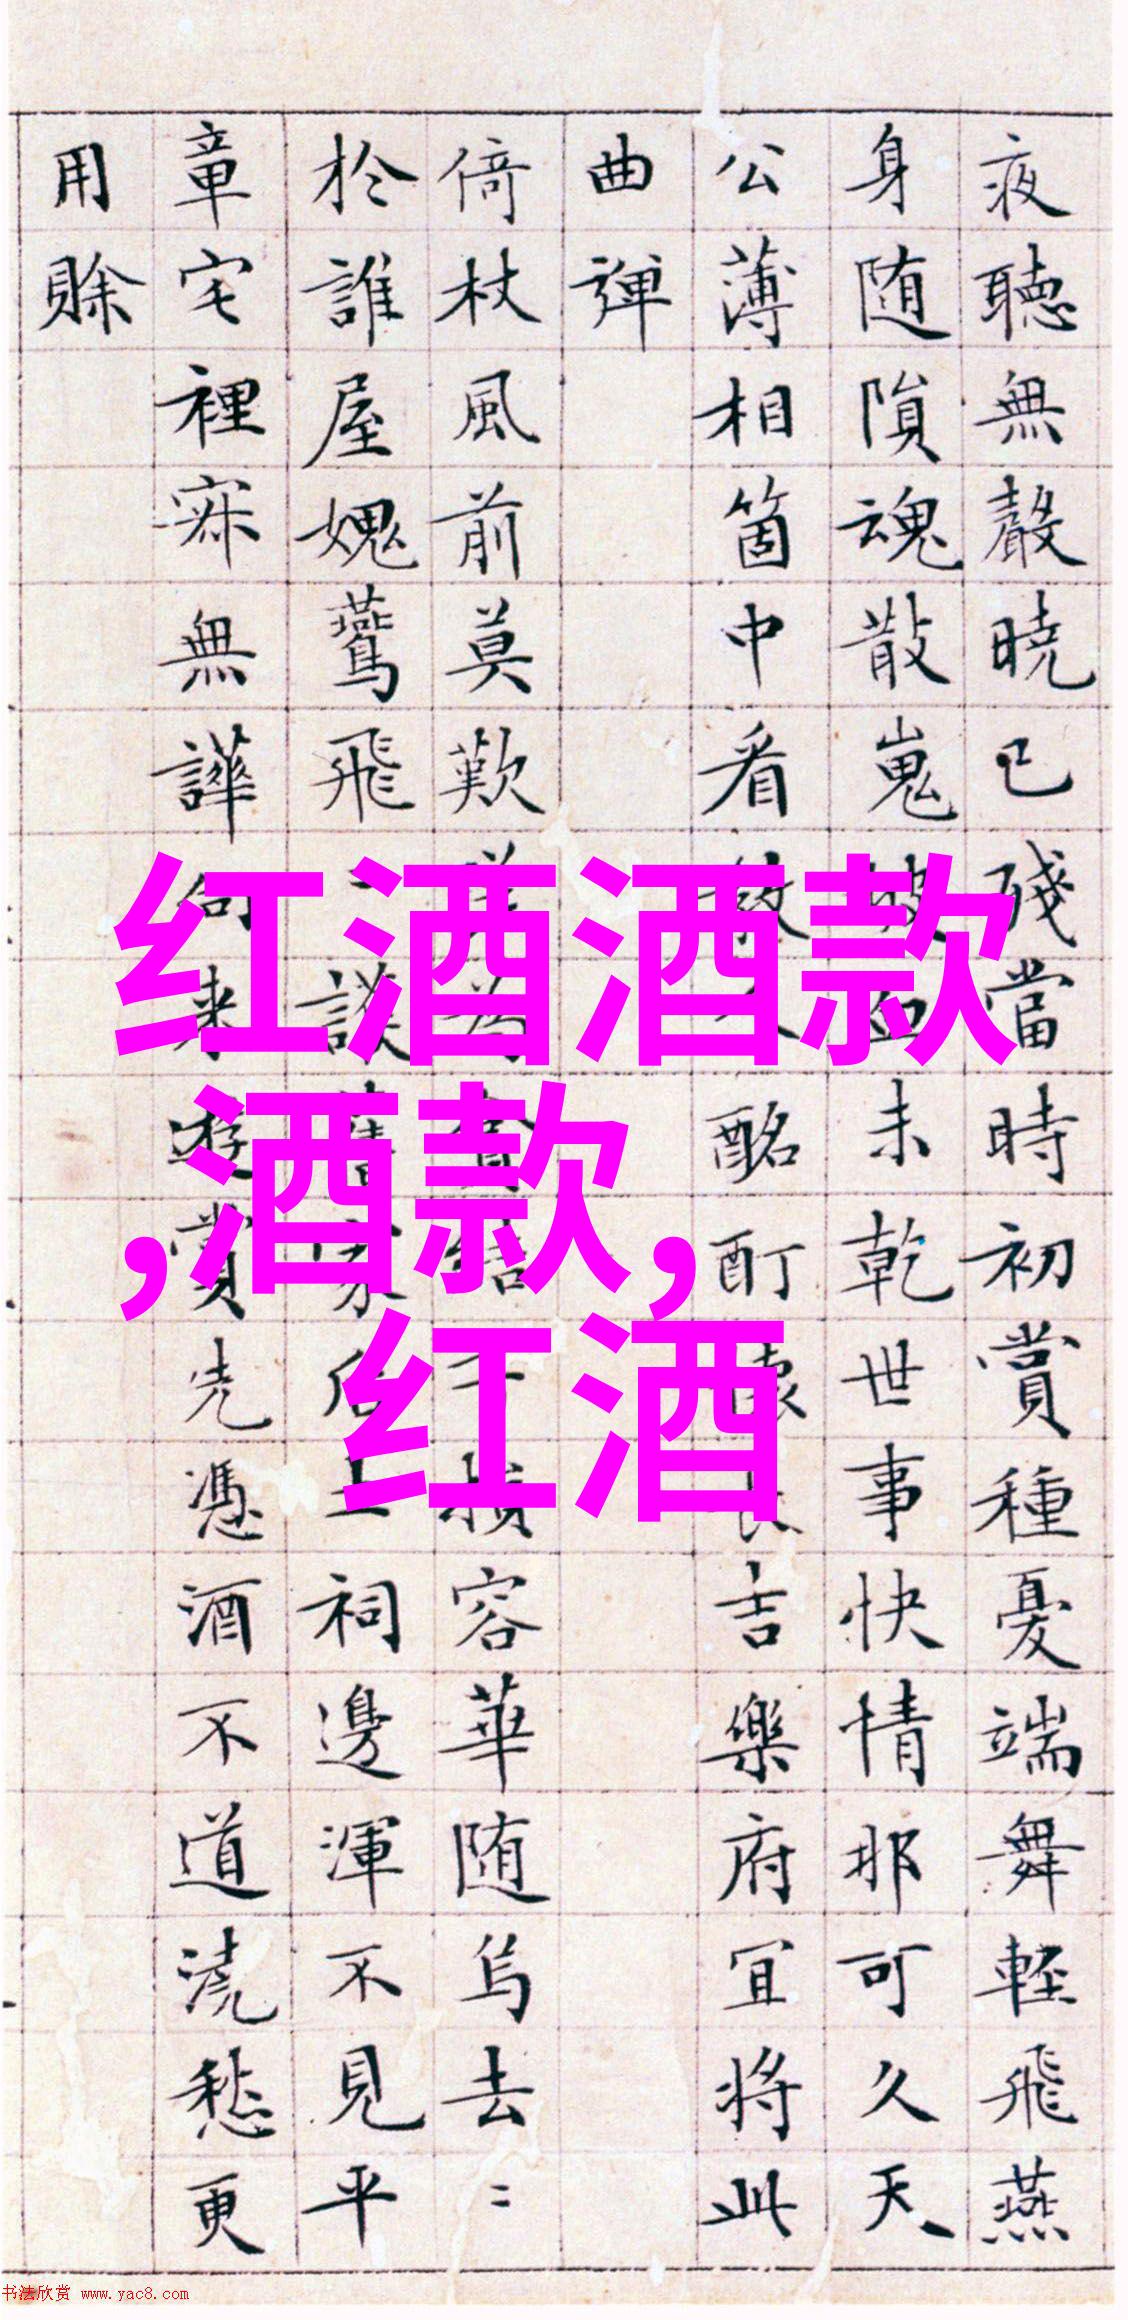 夜聽無聲曉已殘當時初賞種憂端舞輕飛燕
身隨隕魂散嵬坡血未乾世事快情那可久天
公薄相箇中看教人酩酊懷長吉樂府宜將此
曲彈
倚杖風前莫歎嗟為容華隨烏去二
於誰屋媿鶯飛談舊家后土祠邊渾不見平
章宅裡寂無譁向來遊賞先憑酒不道澆愁更
用賒
红酒酒款
,酒款,
红酒
书法欣赏 www.yac8.com